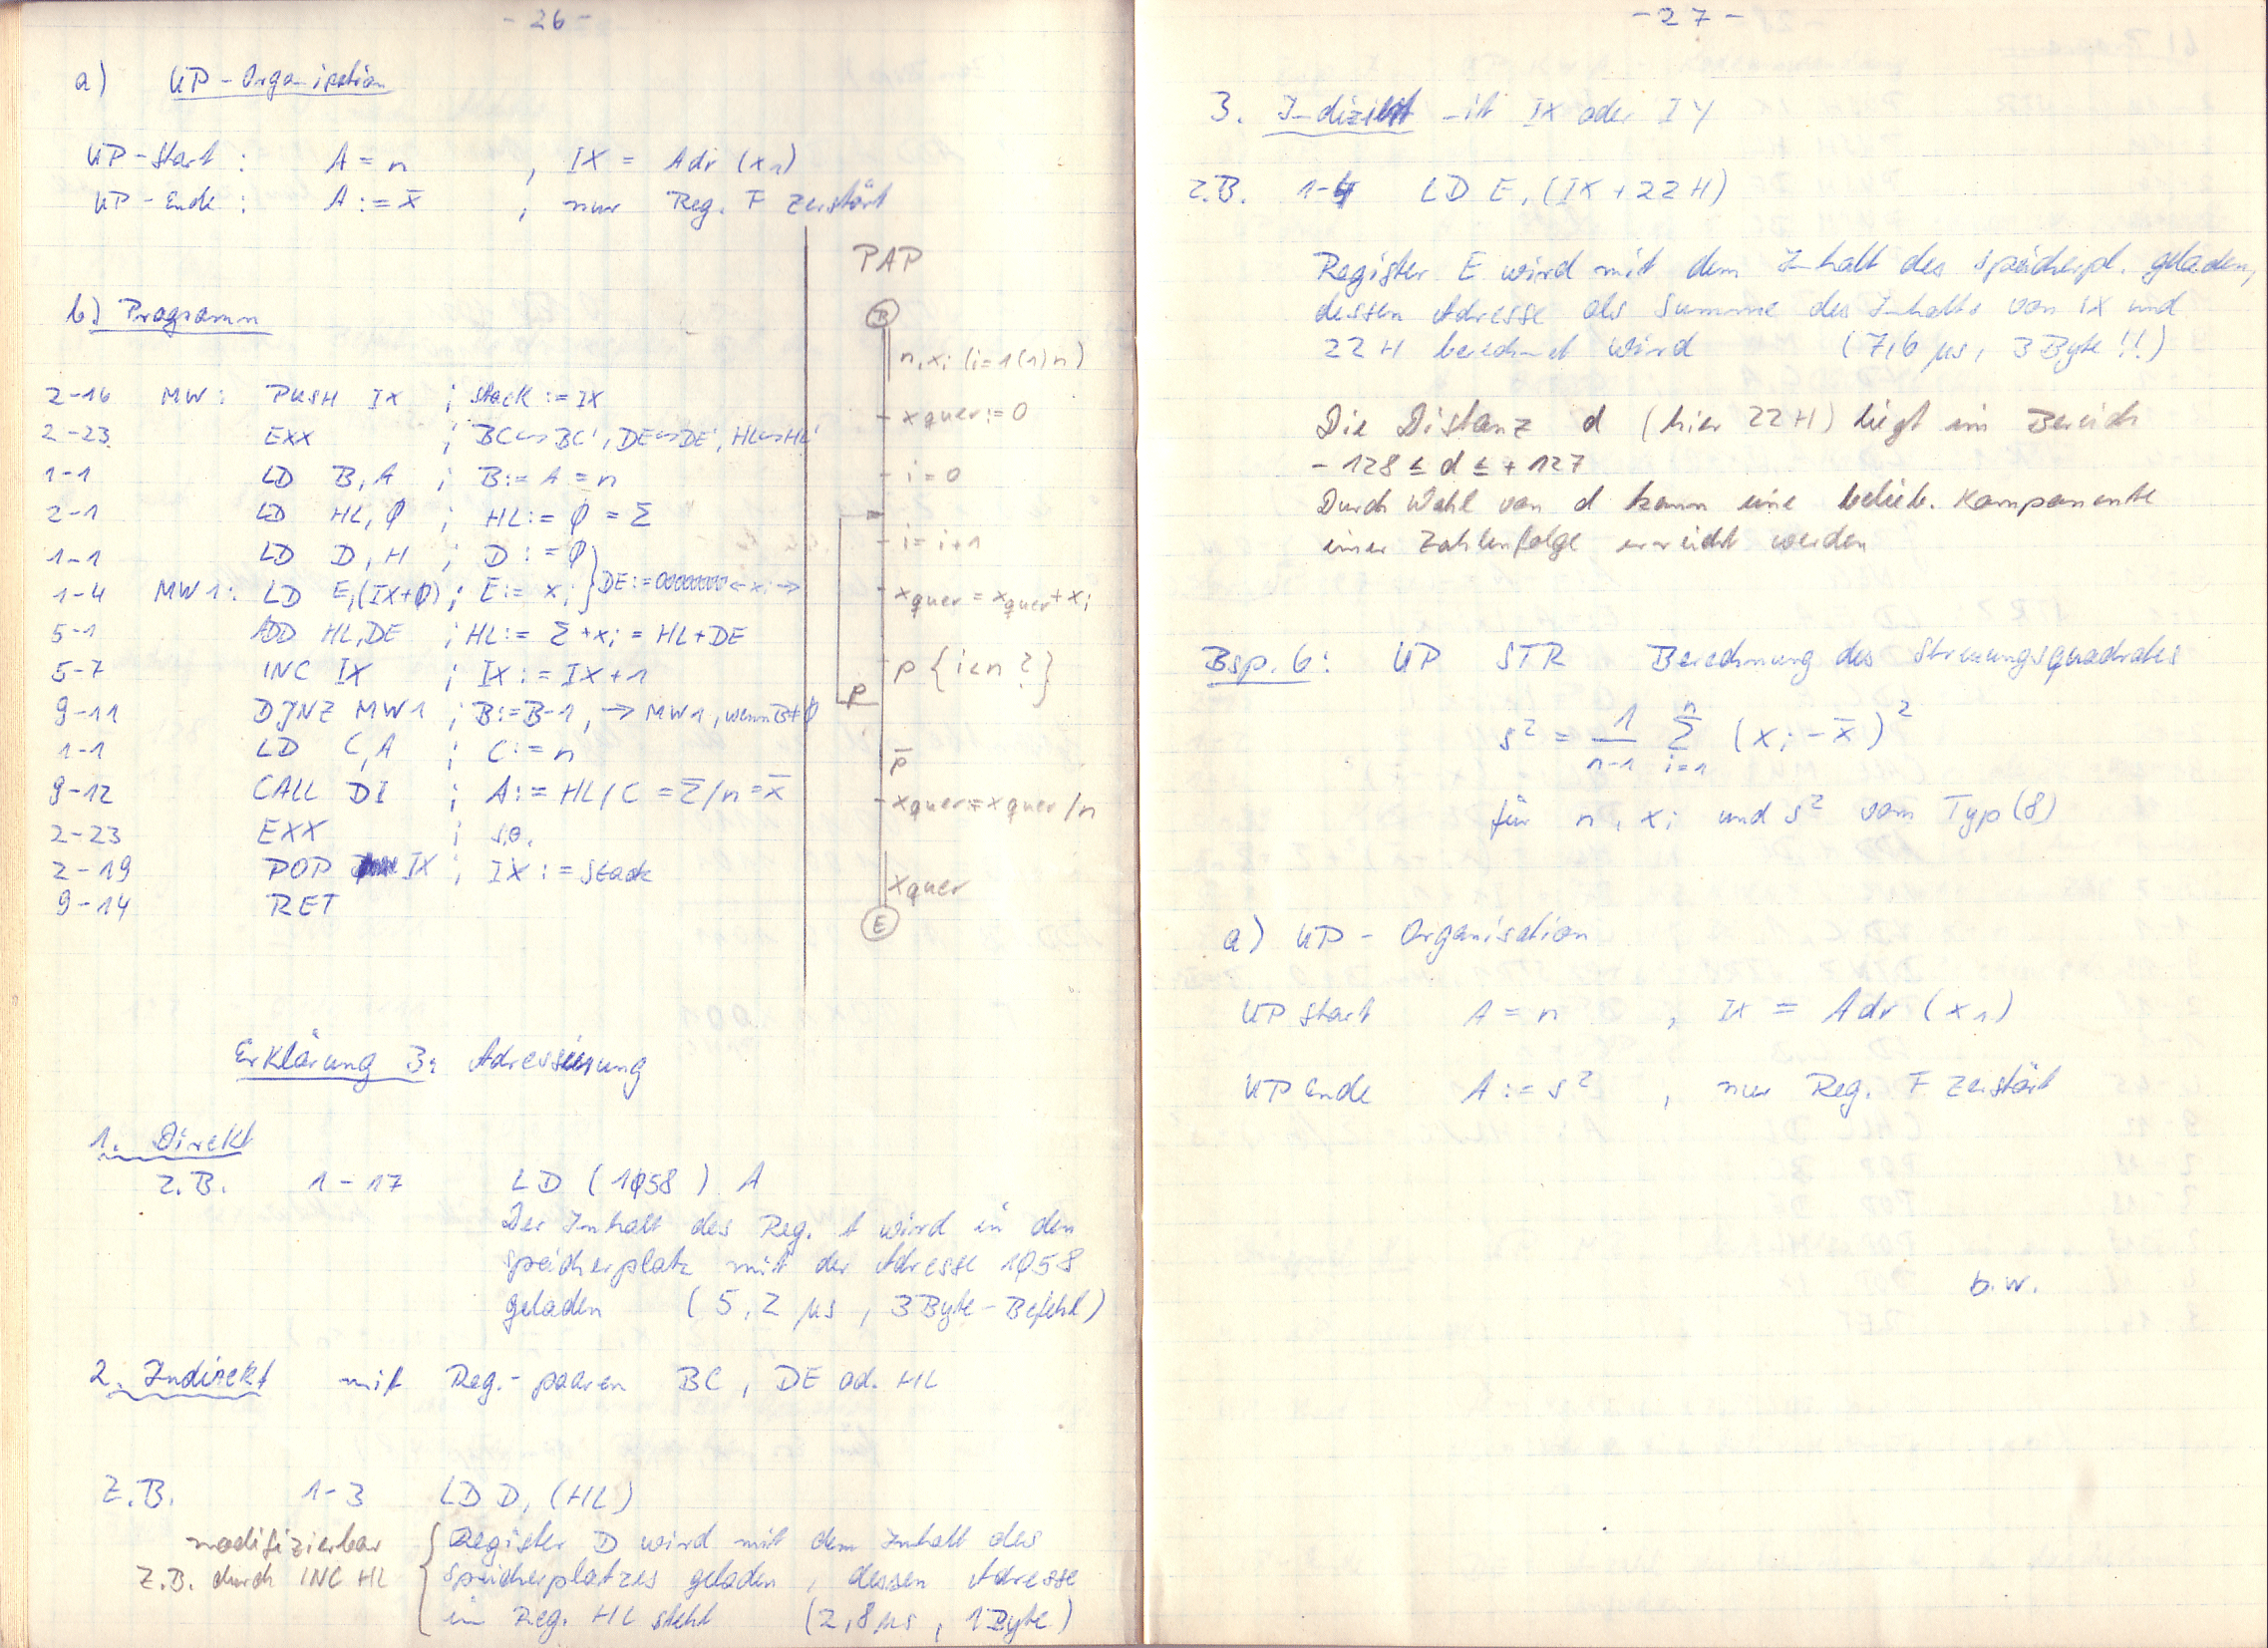 - 26 -
a) UP-Organisation
UP-Start : A = n , IX = Adr (x1)
UP-Ende : A := x̄ , nur Reg. F zerstört
b) Programm
2-16 MW: PUSH IX ; Stack := IX
2-23 EXX ; BC↔BC', DE↔DE', HL↔HL'
1-1 LD B,A ; B := A = n
2-1 LD HL,Ø ; HL := Ø = Σ
1-1 LD D,H ; D := Ø
1-4 MW1: LD E,(IX+Ø) ; E := xi } DE := 00000000 ←xi→
5-1 ADD HL,DE ; HL := Σ+xi = HL+DE
5-7 INC IX ; IX := IX+1
9-11 DJNZ MW1 ; B:=B-1, → MW1, wenn B≠Ø
1-1 LD C,A ; C := n
9-12 CALL DI ; A := HL/C = Σ/n = x̄
2-23 EXX ; s.o.
2-19 POP IX ; IX := Stack
9-14 RET
PAP
B
n, xi (i=1(1)n)
xquer := 0
i = 0
i = i+1
xquer = xquer + xi
p {i<n?}
p
p̄
xquer = xquer/n
xquer
E
Erklärung 3: Adressierung
1. Direkt
z.B. 1-17 LD (1Ø58) A
Der Inhalt des Reg. A wird in den
Speicherplatz mit der Adresse 1Ø58
geladen (5,2 µs, 3Byte-Befehl)
2. Indirekt mit Reg.-paaren BC, DE od. HL
z.B. 1-3 LD D, (HL)
modifizierbar
z.B. durch INC HL
Register D wird mit dem Inhalt des
Speicherplatzes geladen, dessen Adresse
im Reg. HL steht (2,8 µs, 1Byte)
- 27 -
3. Indiziert mit IX oder IY
z.B. 1-4 LD E, (IX + 22H)
Register E wird mit dem Inhalt des Speicherpl. geladen,
dessen Adresse als Summe des Inhalts von IX und
22H berechnet wird (7,6 µs, 3Byte!!)
Die Distanz d (hier 22H) liegt im Bereich
- 128 ≤ d ≤ + 127
Durch Wahl von d kann eine belieb. Komponente
einer Zahlenfolge erreicht werden
Bsp. 6: UP STR Berechnung des Streuungsquadrates
s² = 1/(n-1) Σ(i=1..n) (xi - x̄)²
für n, xi und s² vom Typ (8)
a) UP - Organisation
UP Start A = n , IX = Adr (x1)
UP Ende A := s² , nur Reg. F zerstört
b.w.